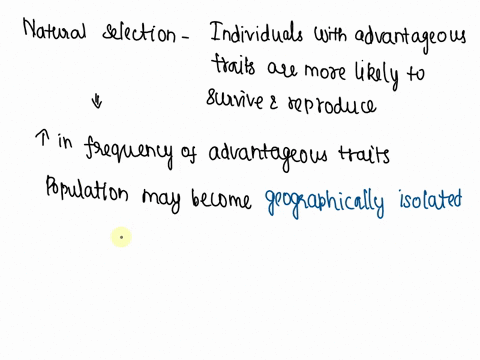 Natural selection - Individuals with advantageous
traits are more likely to
survive & reproduce
↓
↑ in frequency of advantageous traits
Population may become geographically isolated